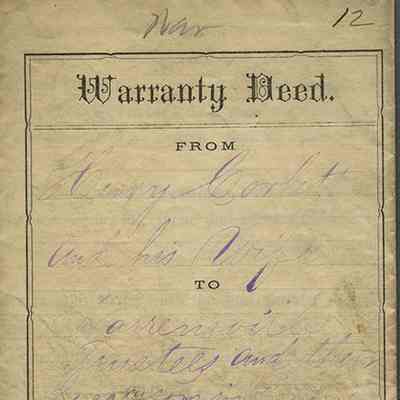 12
Warranty Deed.
FROM
Henry Corbett
and his Wife
TO
Warrensville
Trustees and their